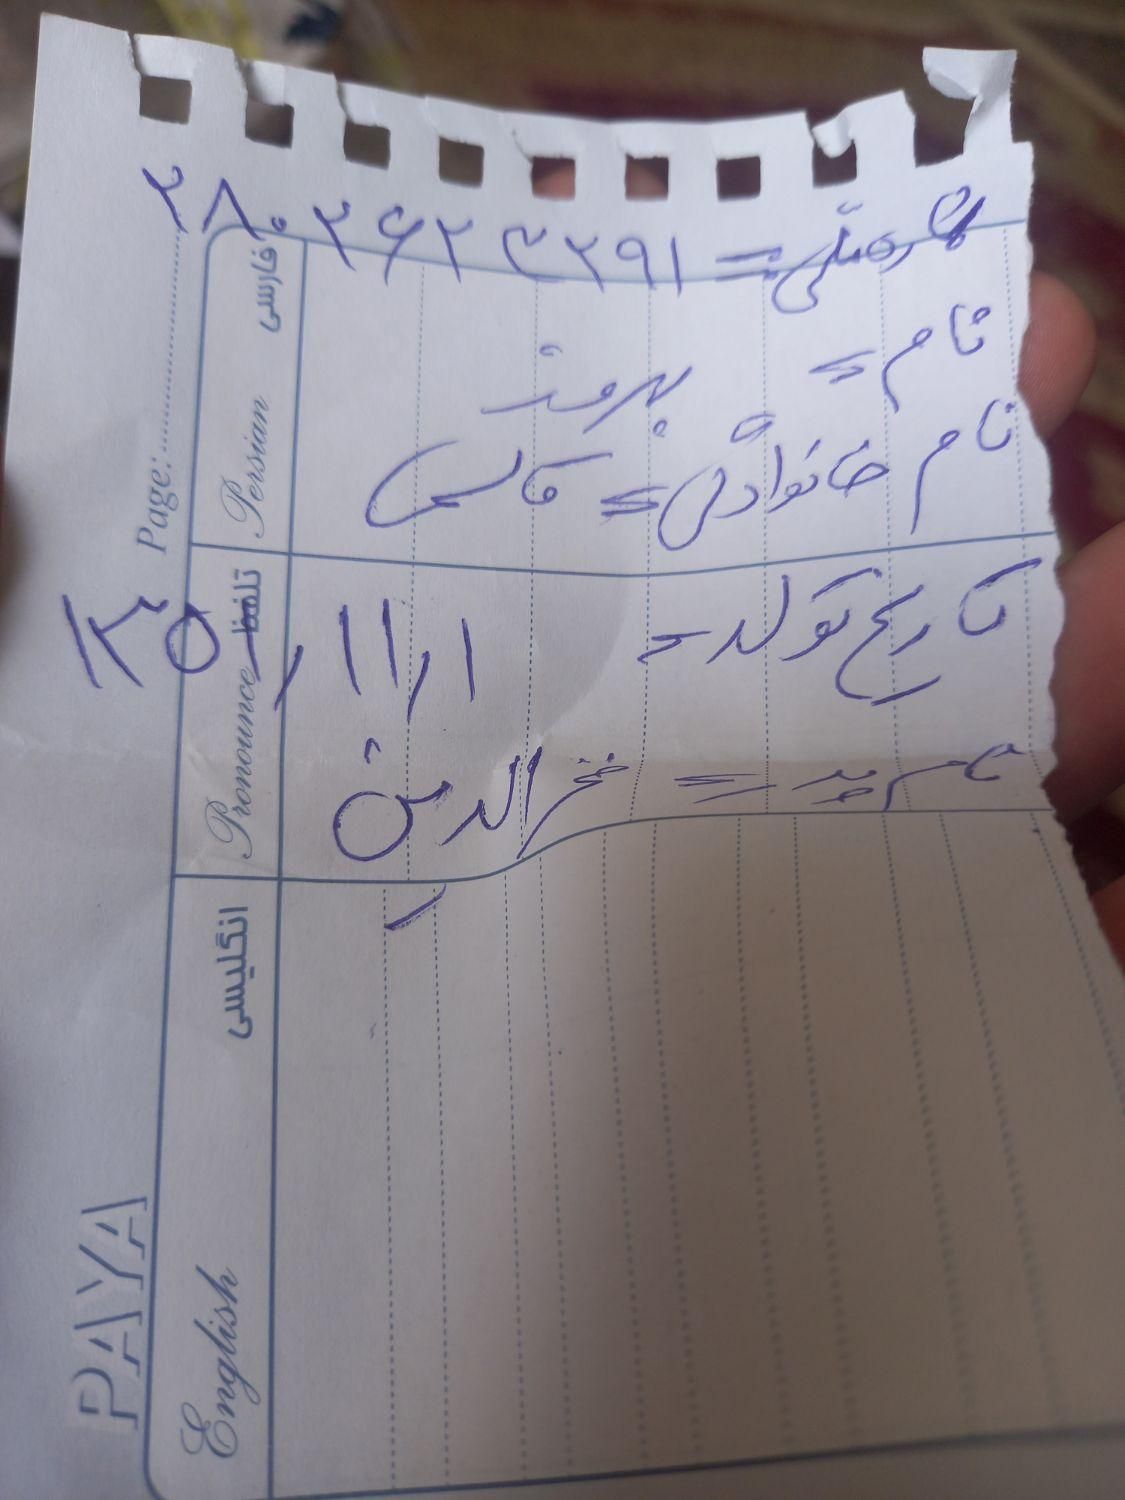 کد ملی = ۲۸۰۲۶۲۳۲۹۱
نام = بهروز
نام خانوادگی =
تاریخ تولد =
نام پدر = فخرالدین
Page:
فارسی Persian
تلفظ Pronounce
انگلیسی English
PAYA